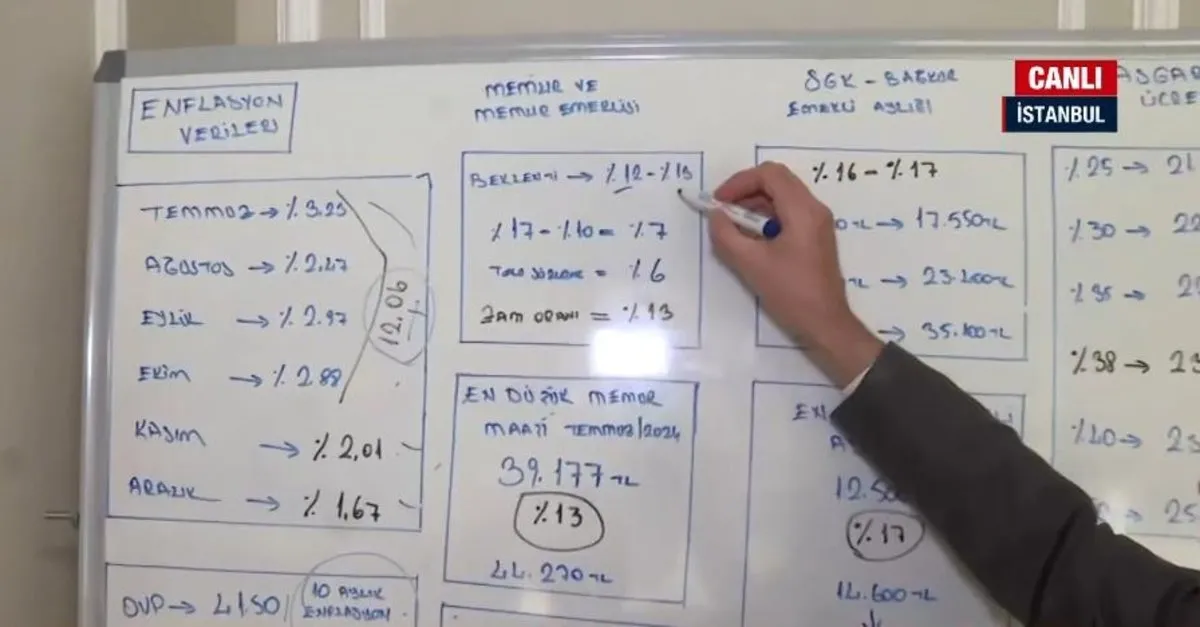 ENFLASYON
VERİLERİ
TEMMOZ → % 3.23
AĞUSTOS → % 2.47
EYLÜL → % 2.97
EKİM → % 2.88
KASIM → % 2,01
ARALIK → % 1,67
12.06
OVP → 41.50
10 AYLIK
ENFLASYON
MEMUR VE
MEMUR EMEKLİSİ
BEKLENTİ → % 12 - % 13
% 17 - % 10 = % 7
TOPLU SÖZLEŞME = % 6
ZAM ORANI = % 13
EN DÜŞÜK MEMUR
MAAŞI TEMMUZ/2024
39.177 TL
% 13
44.270 TL
SGK - BAĞKUR
EMEKLİ AYLIĞI
% 16 - % 17
TL → 17.550 TL
TL → 23.400 TL
→ 35.100 TL
EN
12.50
% 17
14.600 TL
CANLI
İSTANBUL
ASGAR
ÜCRE
% 25 → 21
% 30 → 22
% 35 →
% 38 → 23
% 40 → 23
→ 25